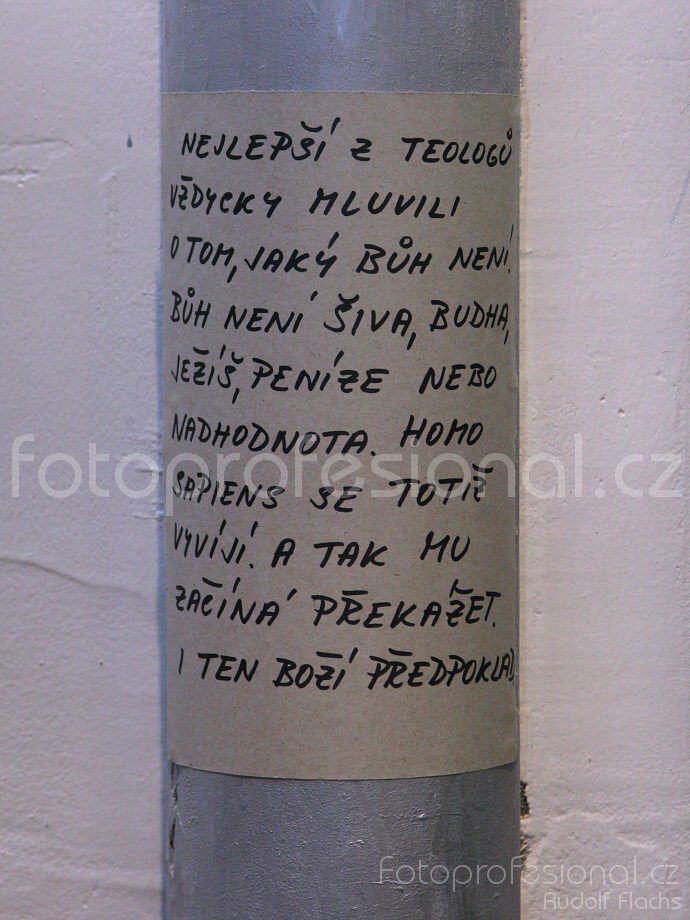 NEJLEPŠÍ Z TEOLOGŮ
VŽDYCKY MLUVILI
O TOM, JAKÝ BŮH NENÍ!
BŮH NENÍ ŠIVA, BUDHA,
JEŽÍŠ, PENÍZE NEBO
NADHODNOTA. HOMO
fotoprofesional.cz
SAPIENS SE TOTIŽ
VYVÍJÍ. A TAK MU
ZAČÍNÁ PŘEKÁŽET.
I TEN BOŽÍ PŘEDPOKLAD.
Fotoprofesional.cz
Rudolf Flachs